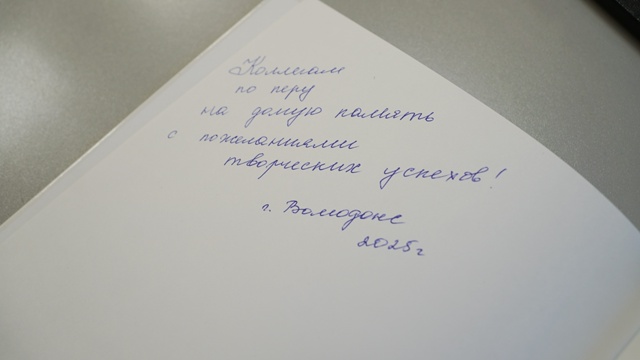 Коллегам
по перу
на долгую память
с пожеланиями
творческих успехов!
г. Волгодонск
2025г